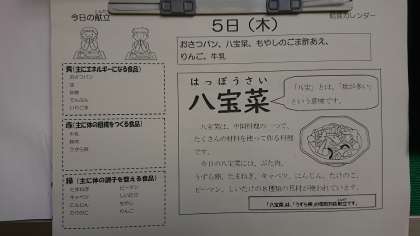 今日の献立
給食カレンダー
5日（木）
おさつパン、八宝菜、もやしのごま酢あえ、
りんご、牛乳
黄(主にエネルギーになる食品)
おさつパン
油
砂糖
でんぷん
いりごま
赤(主に体の組織をつくる食品)
牛乳
豚肉
うずら卵
緑(主に体の調子を整える食品)
たまねぎ
キャベツ
にんじん
たけのこ
ピーマン
しいたけ
もやし
りんご
はっぽうさい
八宝菜
「八宝」とは、「数が多い」
という意味です。
八宝菜は、中国料理の一つで、
たくさんの材料を使って作る料理
です。
今日の八宝菜には、ぶた肉、
うずら卵、たまねぎ、キャベツ、にんじん、たけのこ、
ピーマン、しいたけの8種類の具材が使われています。